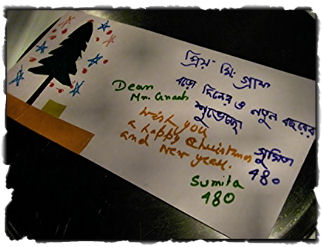 প্রিয় মিঃ গ্রাশ
বড়ো দিনের ও নতুন বছরের
শুভেচ্ছা
সুমিতা
480
Dear
Mr.
wish you
a happy Christmas
and New year.
Sumita
480